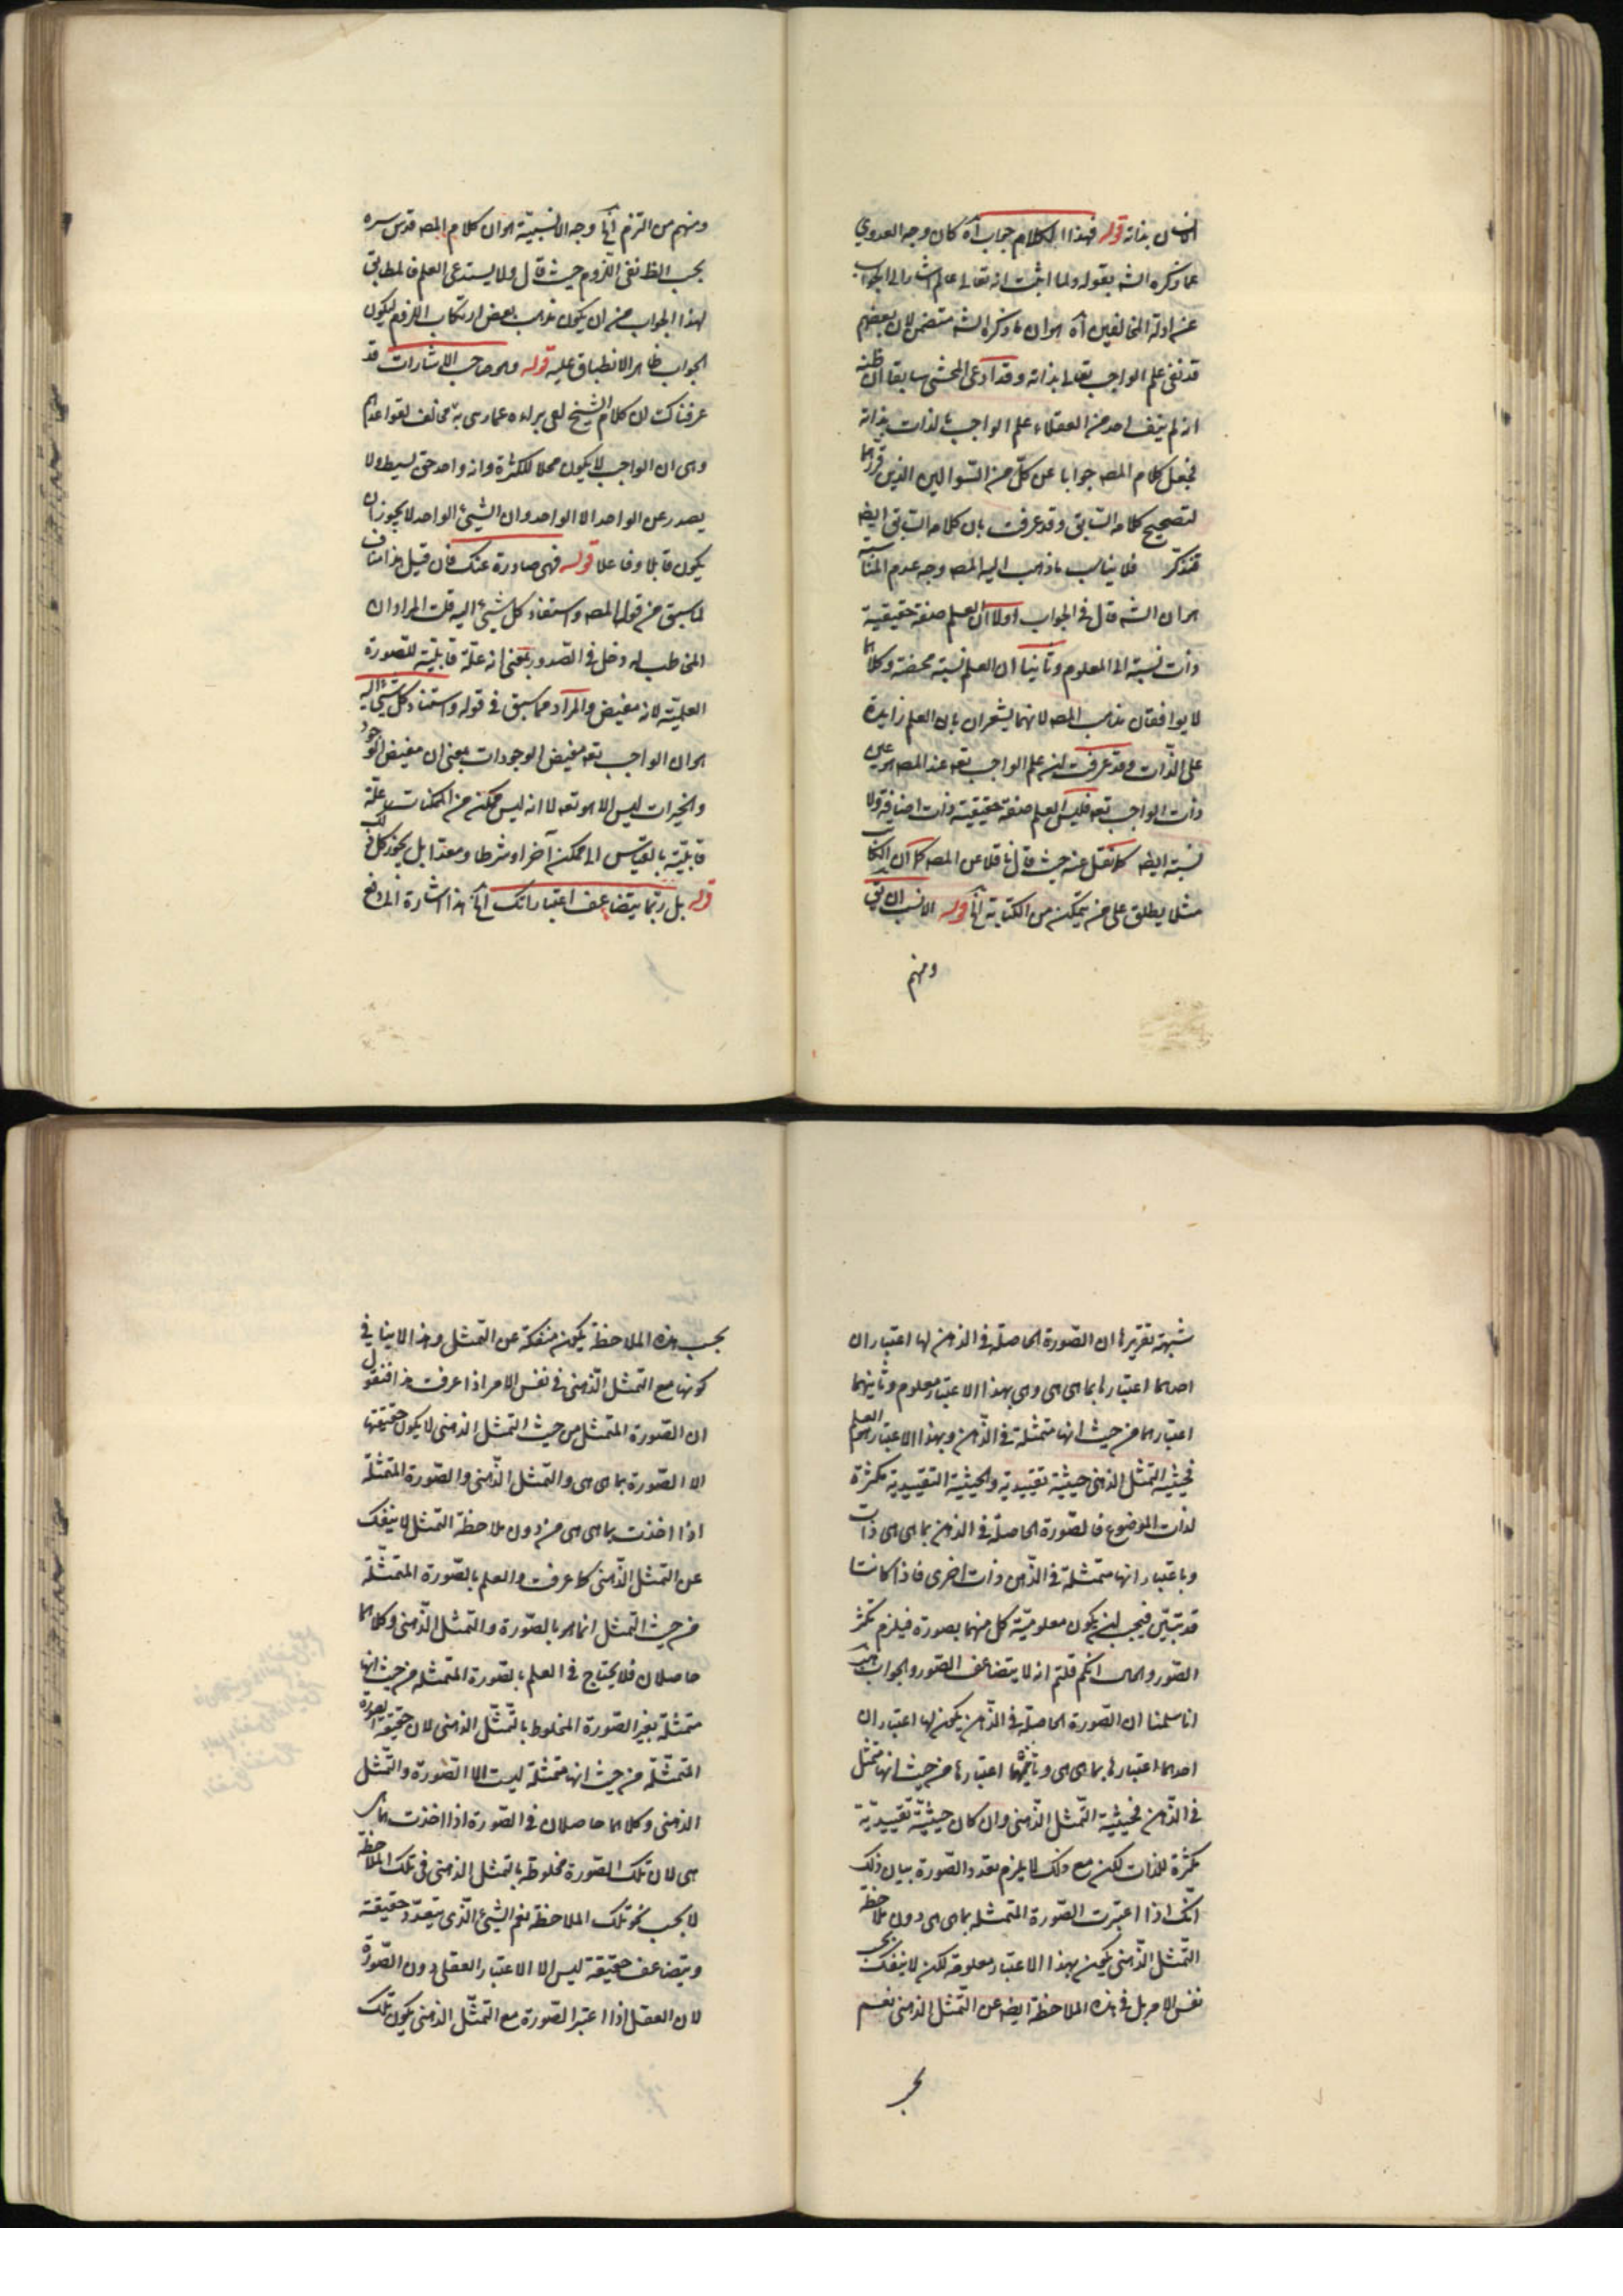 الانسان بذاته قوله فهذا الكلام جواب آه كان وجه العدول
عما ذكره الشه بقوله ولما اثبت انه تعالى عالم اشار الى الجواب
عن ادلة المخالفين آه هو ان ما ذكره الشه متضمن لان بعضهم
قد نفى علم الواجب تعالى بذاته وقد ادعى المحشى سابقا ان ظنه
انه لم ينف احد من العقلاء علم الواجب بالذات بذاته
فجعل كلام المصه جوابا عن كل من السوالين الذين قررهما
لتصحيح كلامه السابق وقد عرفت بان كلامه السابق ايضه
فتذكر فلا يناسب ما ذهب اليه المصه وجه عدم المناسبه
هو ان الشه قال فى الجواب اولا ان العلم صفة حقيقية
ذات نسبة الى المعلوم وثانيا ان العلم نسبة محضة وكلاهما
لا يوافقان مذهب المصه لانهما يشعران بان العلم زايدة
على الذات وقد عرفت ان علم الواجب تعه عند المصه هو عين
ذات الواجب تعه فليس العلم صفة حقيقية ذات اضافة ولا
نسبة ايضه كما نقل عنه حيث قال ناقلا عن المصه كما ان الكاتب
مثلا يطلق على من يتمكن من الكتابة الخ قوله الانسب ان يق
ومنهم
ومنهم من التزم الخ وجه الانسبية هو ان كلام المصه قدس سره
بحسب الظ نفى اللزوم حيث قال ولا يستدعى العلم فالمطابق
لهذا الجواب من ان يكون مذهب بعض ارتكاب اللزوم ليكون
الجواب ظاهر الانطباق عليه قوله وهو صاحب الاشارات قد
عرفناك ان كلام الشيخ لعى براءه عما رمى به مخالف لقواعدهم
وهى ان الواجب لا يكون محلا للكثرة وانه واحد حق بسيط ولا
يصدر عن الواحد الا الواحد وان الشيئ الواحد لا يجوز ان
يكون قابلا وفاعلا قوله فهى صادرة عنك فان قيل هذا مناف
لما سبق من قول المصه واستناد كل شيئ اليه قلت المراد ان
المخاطب له دخل فى الصدور بمعنى انه علة قابلية للصورة
العلمية لانه مفيض والمراد مما سبق فى قوله واستناد كل شيئ اليه
هو ان الواجب تعه مفيض الوجودات بمعنى ان مفيض الوجود
والخيرات ليس الا هو تعه لا انه ليس ممكن من الممكنات علة
قابلية بالقياس الى ممكن آخر او شرطا ومعدا بل يجوز كل ذلك
قوله بل ربما يتضاعف اعتباراتك الخ هذا اشارة الى دفع
شبهة تقريرها ان الصورة الحاصلة فى الذهن لها اعتباران
احدهما اعتبارها بما هى هى وهى بهذا الاعتبار معلوم وثانيهما
اعتبارها من حيث انها متمثلة فى الذهن وبهذا الاعتبار العلم
فحيثية التمثل الذهنى حيثية تقييدية والحيثية التقييدية مكثرة
لذات الموضوع فالصورة الحاصلة فى الذهن بما هى هى ذات
وباعتبار انها متمثلة فى الذهن ذات اخرى فاذا كانتا
قد تبين فيجب ان يكون معلومية كل منهما بصورة فيلزم تكثر
الصور والحال انكم قلتم انه لا يتضاعف الصور والجواب عنه
انا سلمنا ان الصورة الحاصلة فى الذهن يكون لها اعتباران
احدهما اعتبارها بما هى هى وثانيهما اعتبارها من حيث انها تمثل
فى الذهن فحيثية التمثل الذهنى وان كان حيثية تقييدية
مكثرة للذات لكن مع ذلك لا يلزم تعدد الصورة بيان ذلك
انك اذا اعتبرت الصورة المتمثله بما هى هى دون ملاحظة
التمثل الذهنى يكون بهذا الاعتبار معلومة لكن لا ينفك بحسب
نفس الامر بل فى هذه الملاحظة ايضه عن التمثل الذهنى نعم
بحسب
بحسب هذه الملاحظة يكون منفكة عن التمثل وهذا لا ينافى
كونها مع التمثل الذهنى فى نفس الامر اذا عرفت هذا فنقول
ان الصورة المتمثل من حيث التمثل الذهنى لا يكون حقيقتها
الا الصورة بما هى هى والتمثل الذهنى والصورة المتمثلة
اذا اخذت بما هى هى من دون ملاحظة التمثل لا ينفك
عن التمثل الذهنى كما عرفت والعلم بالصورة المتمثلة
من حيث التمثل انما هو بالصورة والتمثل الذهنى وكلاهما
حاصلان فلا يحتاج فى العلم بالصورة المتمثله من حيث انها
متمثلة بغير الصورة المخلوط بالتمثل الذهنى لان حقيقة الصورة
المتمثلة من حيث انها متمثلة ليست الا الصورة والتمثل
الذهنى وكلاهما حاصلان فى الصورة اذا اخذت بما هى
هى لان تلك الصورة مخلوطة بالتمثل الذهنى فى تلك الملاحظة
لا بحسب تلك الملاحظة نعم الشيئ الذى يتعدد حقيقته
ويتضاعف حقيقة ليس الا الاعتبار العقلى دون الصورة
لان العقل اذا اعتبر الصورة مع التمثل الذهنى يكون تلك